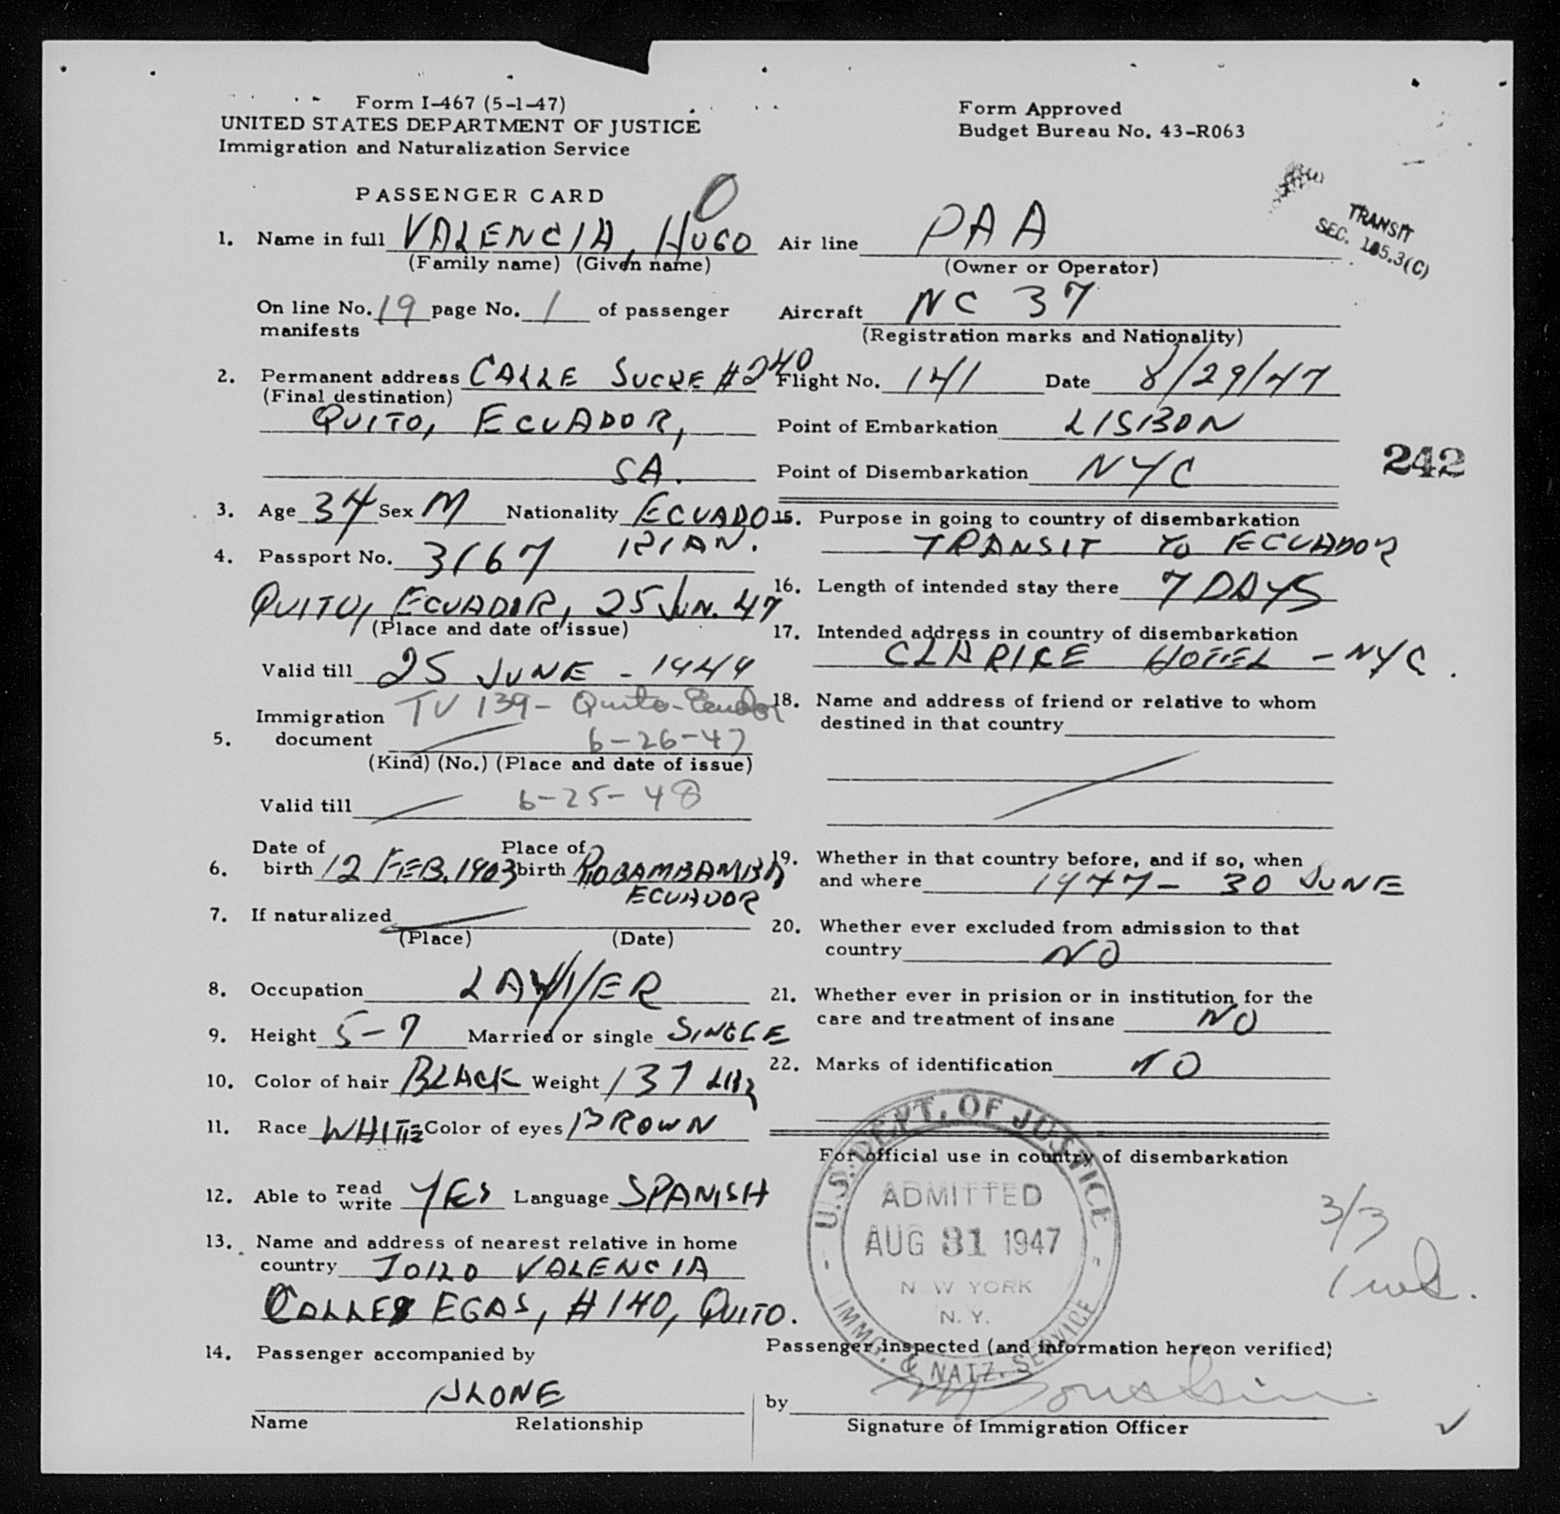 Form I-467 (5-1-47)
UNITED STATES DEPARTMENT OF JUSTICE
Immigration and Naturalization Service
Form Approved
Budget Bureau No. 43-R063
PASSENGER CARD
0
TRANSIT
SEC. 105.3(C)
1. Name in full VALENCIA, HUGO
(Family name) (Given name)
On line No. 19 page No. 1 of passenger
manifests
2. Permanent address CALLE SUCRE #240
(Final destination)
QUITO, ECUADOR,
SA.
3. Age 34 Sex M Nationality ECUADO
RIAN.
4. Passport No. 3167
QUITO, ECUADOR, 25 JUN. 47
(Place and date of issue)
Valid till 25 JUNE - 1949
TV 139 - Quito-Ecuador
5. Immigration
document 6-26-47
(Kind) (No.) (Place and date of issue)
Valid till 6-25-48
6. Date of birth 12 FEB. 1903 Place of birth RIOBAMBAMBA
ECUADOR
7. If naturalized
(Place) (Date)
8. Occupation LAWYER
9. Height 5-7 Married or single SINGLE
10. Color of hair BLACK Weight 137 LBS
11. Race WHITE Color of eyes BROWN
12. Able to read write YES Language SPANISH
13. Name and address of nearest relative in home
country VALENCIA
CALLE EGAS, #140, QUITO.
14. Passenger accompanied by
ALONE
Name Relationship
Air line PAA
(Owner or Operator)
Aircraft NC 37
(Registration marks and Nationality)
Flight No. 141 Date 8/29/47
Point of Embarkation LISBON
Point of Disembarkation NYC
242
15. Purpose in going to country of disembarkation
TRANSIT TO ECUADOR
16. Length of intended stay there 7 DAYS
17. Intended address in country of disembarkation
CLARIKE HOTEL - NYC.
18. Name and address of friend or relative to whom
destined in that country
19. Whether in that country before, and if so, when
and where 1947 - 30 JUNE
20. Whether ever excluded from admission to that
country NO
21. Whether ever in prision or in institution for the
care and treatment of insane NO
22. Marks of identification NO
For official use in country of disembarkation
U.S. DEPT. OF JUSTICE
ADMITTED
AUG 31 1947
N W YORK
N. Y.
IMMG. & NATZ. SERVICE
3/3
Passenger inspected (and information hereon verified)
by
Signature of Immigration Officer